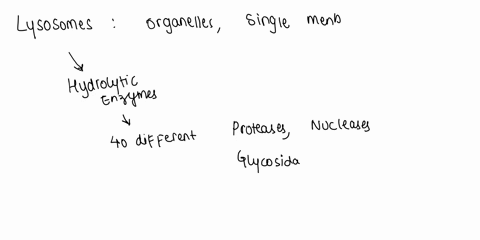 Lysosomes : organelles, Single memb
Hydrolytic
Enzymes
40 different Proteases, Nucleases
Glycosida